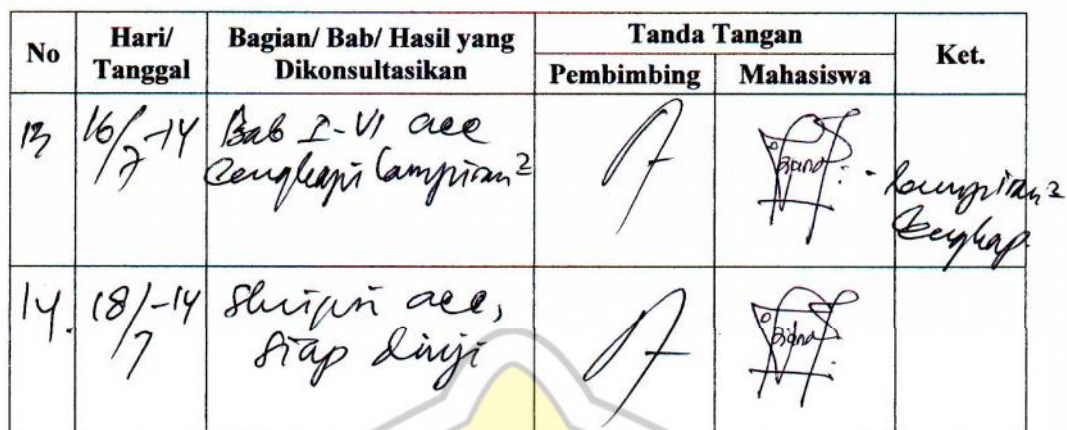 No Hari/ Tanggal Bagian/ Bab/ Hasil yang Dikonsultasikan Tanda Tangan Ket.
Pembimbing Mahasiswa
13 16/7-14 Bab I-VI acc
Lengkapi lampiran²
lampiran²
lengkap.
14. 18/7-14 Skripsi acc,
siap diuji